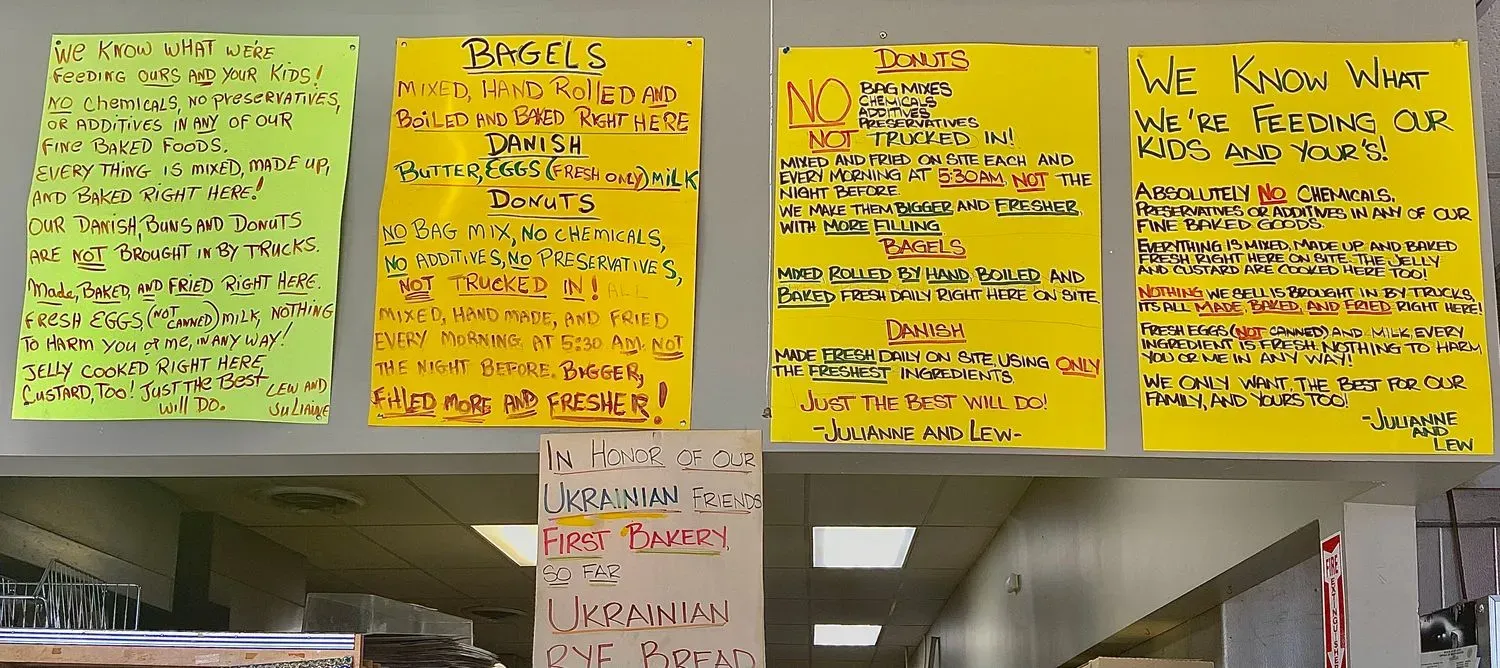 WE KNOW WHAT WE'RE
FEEDING OURS AND YOUR KIDS!
NO CHEMICALS, NO PRESERVATIVES,
OR ADDITIVES IN ANY OF OUR
FINE BAKED FOODS.
EVERY THING IS MIXED, MADE UP,
AND BAKED RIGHT HERE!
OUR DANISH, BUNS AND DONUTS
ARE NOT BROUGHT IN BY TRUCKS.
MADE, BAKED, AND FRIED RIGHT HERE.
FRESH EGGS, (NOT CANNED) MILK, NOTHING
TO HARM YOU or ME, IN ANY WAY!
JELLY COOKED RIGHT HERE,
CUSTARD, TOO! JUST THE BEST
WILL DO.
LEW AND
JULIANNE
BAGELS
MIXED, HAND ROLLED AND
BOILED AND BAKED RIGHT HERE
DANISH
BUTTER, EGGS (FRESH ONLY) MILK
DONUTS
NO BAG MIX, NO CHEMICALS,
NO ADDITIVES, NO PRESERVATIVES,
NOT TRUCKED IN! ALL
MIXED, HAND MADE, AND FRIED
EVERY MORNING AT 5:30 AM. NOT
THE NIGHT BEFORE. BIGGER,
FILLED MORE AND FRESHER!
DONUTS
NO BAG MIXES
CHEMICALS
ADDITIVES
PRESERVATIVES
NOT TRUCKED IN!
MIXED AND FRIED ON SITE EACH AND
EVERY MORNING AT 5:30AM, NOT THE
NIGHT BEFORE.
WE MAKE THEM BIGGER AND FRESHER,
WITH MORE FILLING
BAGELS
MIXED, ROLLED BY HAND, BOILED AND
BAKED FRESH DAILY RIGHT HERE ON SITE
DANISH
MADE FRESH DAILY ON SITE, USING ONLY
THE FRESHEST INGREDIENTS.
JUST THE BEST WILL DO!
-JULIANNE AND LEW-
WE KNOW WHAT
WE'RE FEEDING OUR
KIDS AND YOUR'S!
ABSOLUTELY NO CHEMICALS,
PRESERVATIVES OR ADDITIVES IN ANY OF OUR
FINE BAKED GOODS.
EVERYTHING IS MIXED, MADE UP AND BAKED
FRESH RIGHT HERE ON SITE. THE JELLY
AND CUSTARD ARE COOKED HERE TOO!
NOTHING WE SELL IS BROUGHT IN BY TRUCKS,
ITS ALL MADE, BAKED, AND FRIED RIGHT HERE!
FRESH EGGS (NOT CANNED) AND MILK, EVERY
INGREDIENT IS FRESH. NOTHING TO HARM
YOU OR ME IN ANY WAY!
WE ONLY WANT THE BEST FOR OUR
FAMILY, AND YOURS TOO!
-JULIANNE
AND
LEW
IN HONOR OF OUR
UKRAINIAN FRIENDS
FIRST BAKERY,
SO FAR
UKRAINIAN
RYE BREAD
FIRE EXTINGUIS